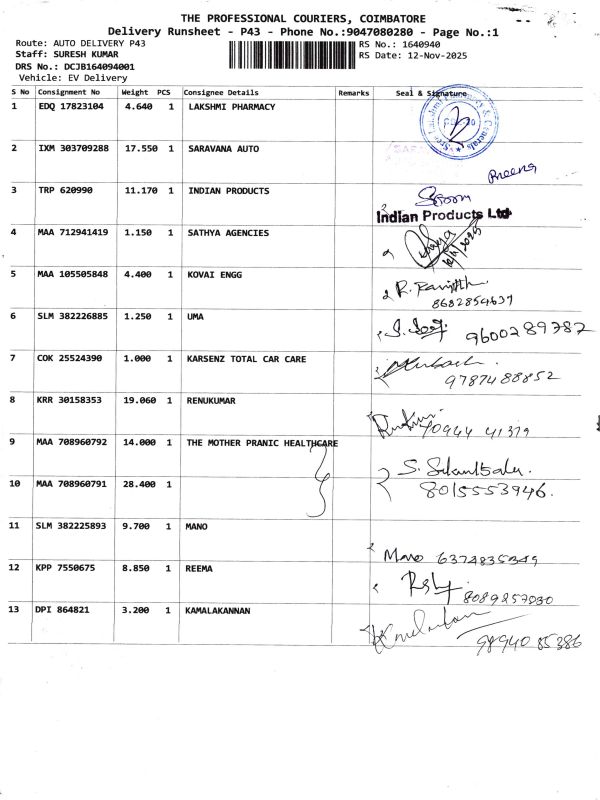 THE PROFESSIONAL COURIERS, COIMBATORE
Delivery Runsheet - P43 - Phone No.:9047080280 - Page No.:1
Route: AUTO DELIVERY P43 RS No.: 1640940
Staff: SURESH KUMAR RS Date: 12-Nov-2025
DRS No.: DCJB164094001
Vehicle: EV Delivery
S No Consignment No Weight PCS Consignee Details Remarks Seal & Signature
1 EDQ 17823104 4.640 1 LAKSHMI PHARMACY
2 IXM 303709288 17.550 1 SARAVANA AUTO
Praveena
3 TRP 620990 11.170 1 INDIAN PRODUCTS
Indian Products Ltd
4 MAA 712941419 1.150 1 SATHYA AGENCIES
5 MAA 105505848 4.400 1 KOVAI ENGG R. Ranjith
8682854639
6 SLM 382226885 1.250 1 UMA
9600289782
7 COK 25524390 1.000 1 KARSENZ TOTAL CAR CARE
9787488852
8 KRR 30158353 19.060 1 RENUKUMAR
90944 41379
9 MAA 708960792 14.000 1 THE MOTHER PRANIC HEALTHCARE
10 MAA 708960791 28.400 1 8015553946.
11 SLM 382225893 9.700 1 MANO
Mano 6372835349
12 KPP 7550675 8.850 1 REEMA
8089257030
13 DPI 864821 3.200 1 KAMALAKANNAN
98940 85386